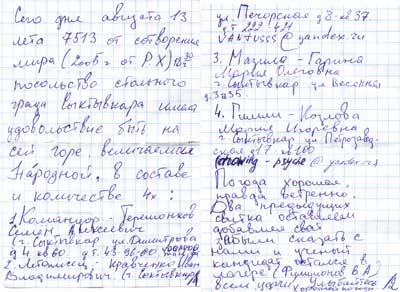 Сего дня августа 13
лета 7513 от сотворения
мира (2005 г от Р.Х)
посольство стольного
града Сыктывкара имело
удовольствие быть на
сей горе, величаемой
Народной, в составе
и количестве 4х:
1. Командор - Терентьков
Семен Алексеевич
(г. Сыктывкар ул. Димитрова
д 4 кв 60 д.т. 43-96-00
2. Летописец - Кравченко Иван
Владимирович (г. Сыктывкар
ул. Печорская д 8 кв 37
@yandex.ru
3. Мазила - Гарина
Мария Олеговна
г. Сыктывкар ул Весенняя
4. Пилим - Козлова
Мария Игоревна
г Сыктывкар ул Петрозавод-
ская д 17 кв 100
drawing - psyche @ yandex.ru
Погода хорошая,
правда ветренно.
Два предыдущих
свитка оставляем
добавляем свой
Забыли сказать с
нами и ученый
кандидат остался в
лагере (Филиппов В.А)
всем удачи! Улыбайтесь